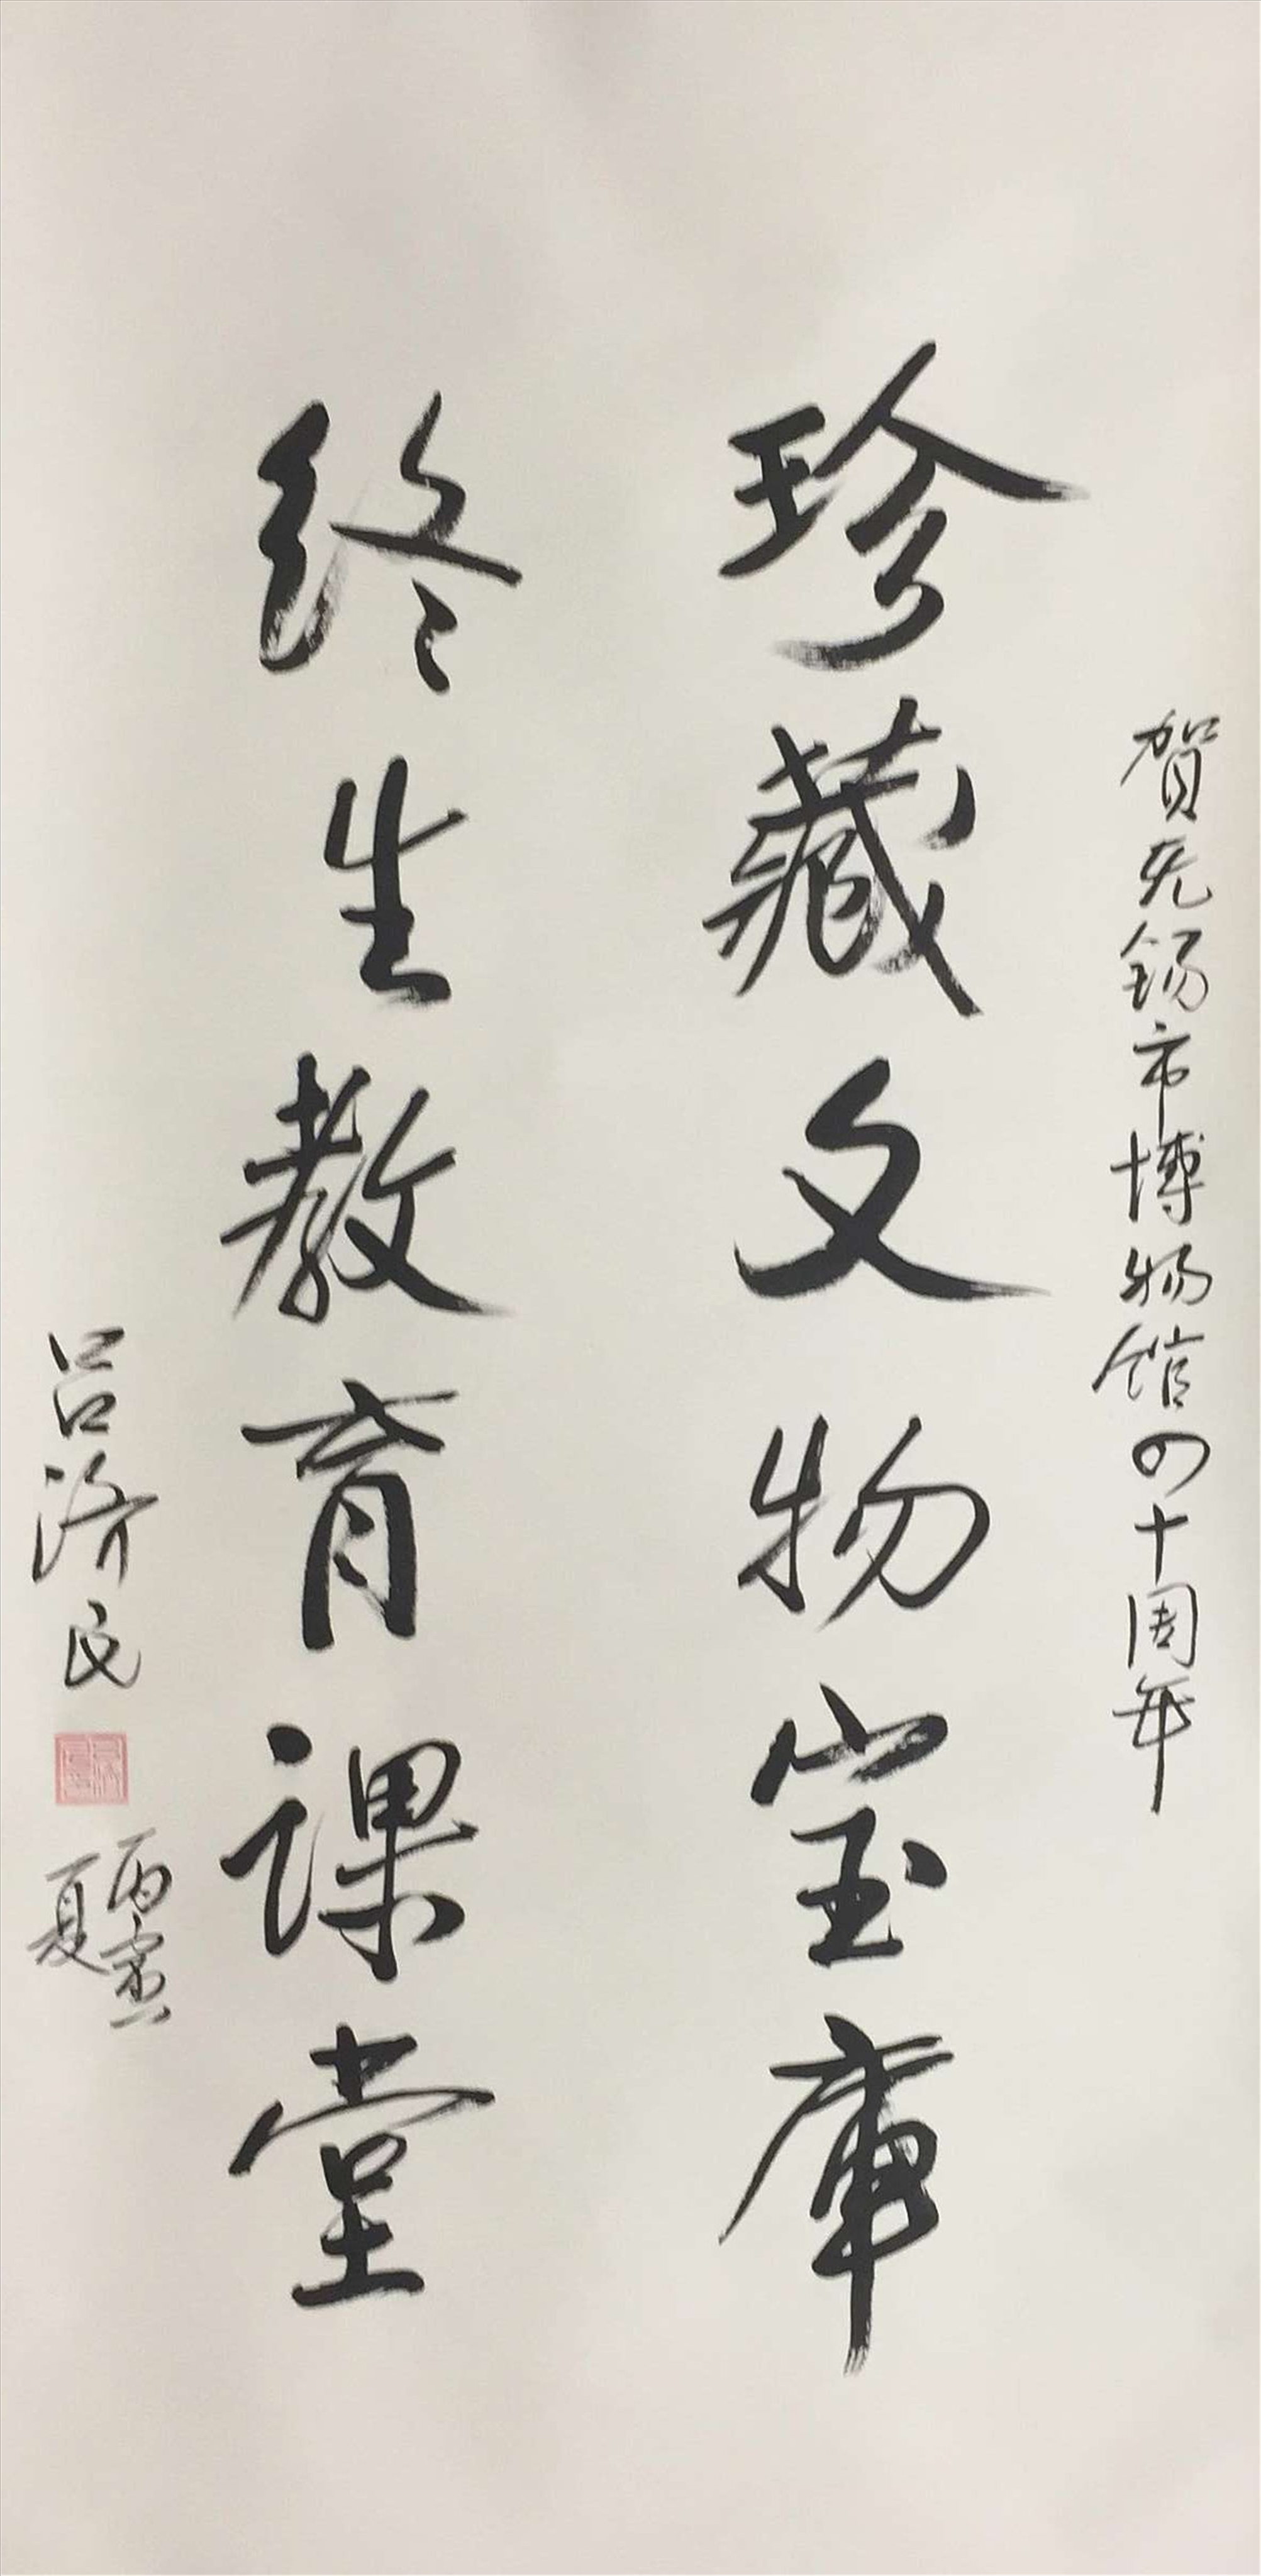 賀无锡市博物馆四十周年
珍藏文物宝库
终生教育课堂
吕济民
丙寅
夏